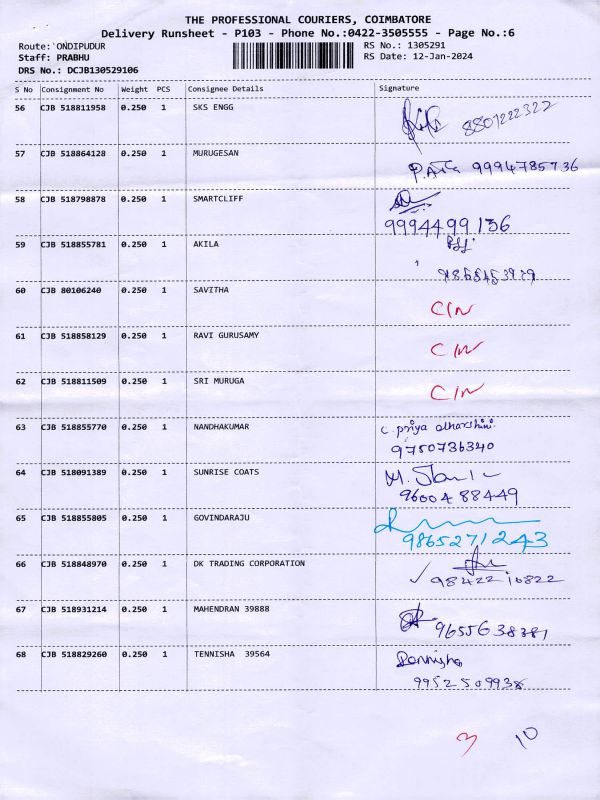 THE PROFESSIONAL COURIERS, COIMBATORE
Delivery Runsheet - P103 - Phone No.:0422-3505555 - Page No.:6
Route: ONDIPUDUR RS No.: 1305291
Staff: PRABHU RS Date: 12-Jan-2024
DRS No.: DCJB130529106
S No Consignment No Weight PCS Consignee Details Signature
56 CJB 518811958 0.250 1 SKS ENGG
8807222322
57 CJB 518864128 0.250 1 MURUGESAN
9994785736
58 CJB 518798878 0.250 1 SMARTCLIFF
9994499136
59 CJB 518855781 0.250 1 AKILA
60 CJB 80106240 0.250 1 SAVITHA
C/N
61 CJB 518858129 0.250 1 RAVI GURUSAMY
C/N
62 CJB 518811509 0.250 1 SRI MURUGA
C/N
63 CJB 518855770 0.250 1 NANDHAKUMAR
C. Priya dharshini
9750736340
64 CJB 518091389 0.250 1 SUNRISE COATS
9600488449
65 CJB 518855805 0.250 1 GOVINDARAJU
9865271243
66 CJB 518848970 0.250 1 DK TRADING CORPORATION
✓ 9842210822
67 CJB 518931214 0.250 1 MAHENDRAN 39888
9655638381
68 CJB 518829260 0.250 1 TENNISHA 39564
Dennisha
9952509938
3 10